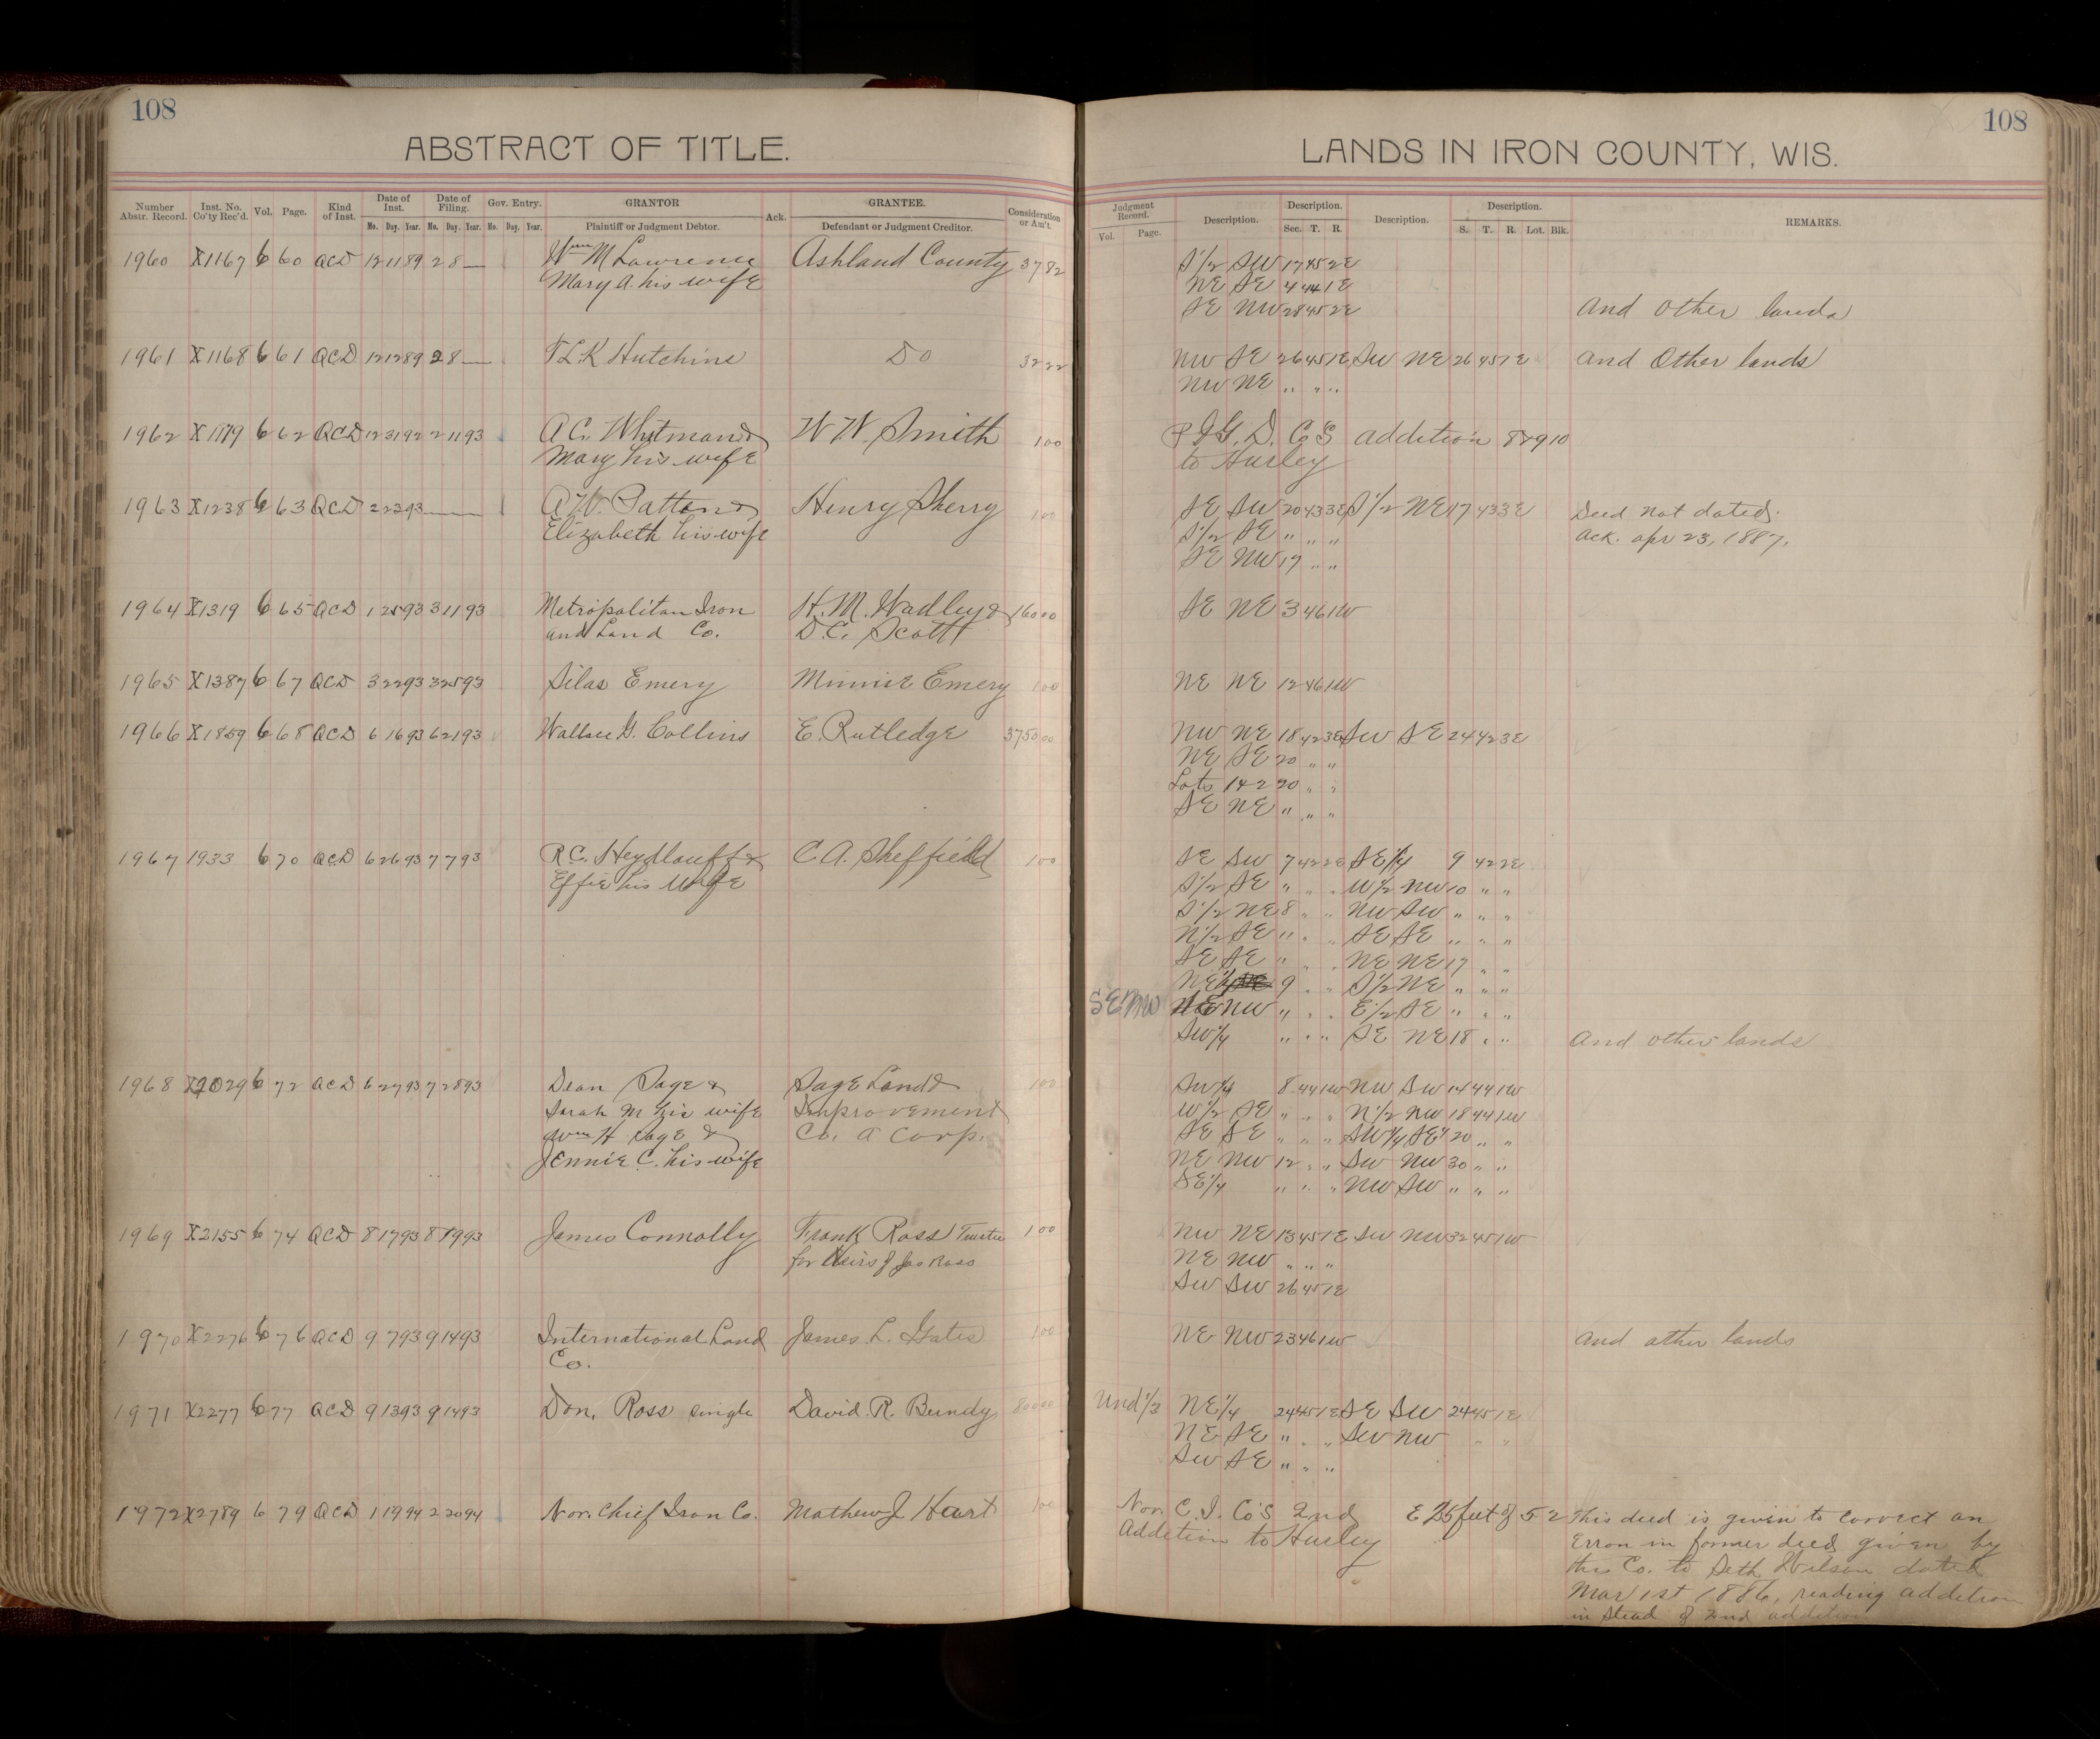 108
ABSTRACT OF TITLE.
Number Abstr. Record. Inst. No. Co'ty Rec'd. Vol. Page. Kind of Inst. Date of Inst. Mo. Day. Year. Date of Filing. Mo. Day. Year. Gov. Entry. Mo. Day. Year. GRANTOR Plaintiff or Judgment Debtor. Ack. GRANTEE. Defendant or Judgment Creditor. Consideration or Am't.
1960 X1167 6 60 QCD 12 11 89 2 8 — Wm M Lawrence Ashland County 37 82
Mary A. his wife
1961 X1168 6 61 QCD 12 12 89 2 8 — T L K Hutchins Do 32 22
1962 X1179 6 62 QCD 12 31 92 2 11 93 A C. Whitman & W W. Smith 1 00
Mary his wife
1963 X1238 6 63 QCD 2 23 93 — A W. Patten & Henry Sherry 1 00
Elizabeth his wife
1964 X1319 6 65 QCD 1 25 93 3 11 93 Metropolitan Iron H. M. Wadley & 160 00
and Land Co. D. C. Scott
1965 X1387 6 67 QCD 3 22 93 3 25 93 Silas Emery Minnie Emery 1 00
1966 X1859 6 68 QCD 6 16 93 6 21 93 Wallace G. Collins E. Rutledge 3750 00
1967 1933 6 70 QCD 6 26 93 7 7 93 R C. Heydlauff & C. A. Sheffield 1 00
Effie his wife
1968 X2029 6 72 QCD 6 27 93 7 28 93 Dean Sage & Sage Land & 1 00
Sarah M his wife Improvement
Wm H Sage & Co. a Corp.
Jennie C. his wife
1969 X2155 6 74 QCD 8 17 93 8 19 93 James Connolly Frank Ross Trustee 1 00
for Heirs of Jas Ross
1970 X2276 6 76 QCD 9 7 93 9 14 93 International Land James L. Gates 1 00
Co.
1971 X2277 6 77 QCD 9 13 93 9 14 93 Don. Ross single David R. Bundy 800 00
1972 X2789 6 79 QCD 1 19 94 2 20 94 Nor. Chief Iron Co. Mathew J Hart 1 00
108
LANDS IN IRON COUNTY, WIS.
Judgment Record. Vol. Page. Description. Description. Sec. T. R. Description. Description. S. T. R. Lot. Blk. REMARKS.
S 1/2 SW 17 45 2E
NE SE 4 44 1E
SE NW 28 45 2E And other lands
NW SE 26 45 1E SW NE 26 45 1E And Other lands
NW NE " " "
G. D. Co'S addition 8 & 9 10
to Hurley
SE SW 20 43 3E S 1/2 NE 17 43 3E Deed not dated.
S 1/2 SE " " " Ack. Apr 23, 1887.
SE NW 17 " "
SE NE 3 46 1W
NE NE 12 46 1W
NW NE 18 42 3E SW SE 24 42 3E
NE SE 20 " "
Lots 1 & 2 20 " "
SE NE " " "
SE SW 7 42 2E SE 1/4 9 42 2E
S 1/2 SE " " " W 1/2 NW 10 " "
S 1/2 NE 8 " " NW SW " " "
N 1/2 SE " " " SE SE " " "
SE SE " " " NE NE 17 " "
NE 1/4 9 " " S 1/2 NE " " "
SE NW NE NW " " " E 1/2 SE " " "
SW 1/4 " " " SE NE 18 " " And other lands
SW 1/4 8 44 1W NW SW 14 44 1W
W 1/2 SE " " " N 1/2 NW 18 44 1W
SE SE " " " SW 1/4 SE 1/4 20 " "
NE NW 12 " " SW NW 30 " "
SE 1/4 " " " NW SW " " "
NW NE 13 45 1E SW NW 32 45 1W
NE NW " " "
SW SW 26 45 1E
NE NW 23 46 1W And other lands
Und 1/3 NE 1/4 24 45 1E SE SW 24 45 1E
NE SE " " " SW NW " "
SW SE " " "
Nor. C. I. Co'S 2nd E 25 feet of 5 2 This deed is given to correct an
Addition to Hurley Error in former deed given by
this Co. to Seth Wilson dated
Mar 1st 1886, reading addition
in stead of 2nd addition